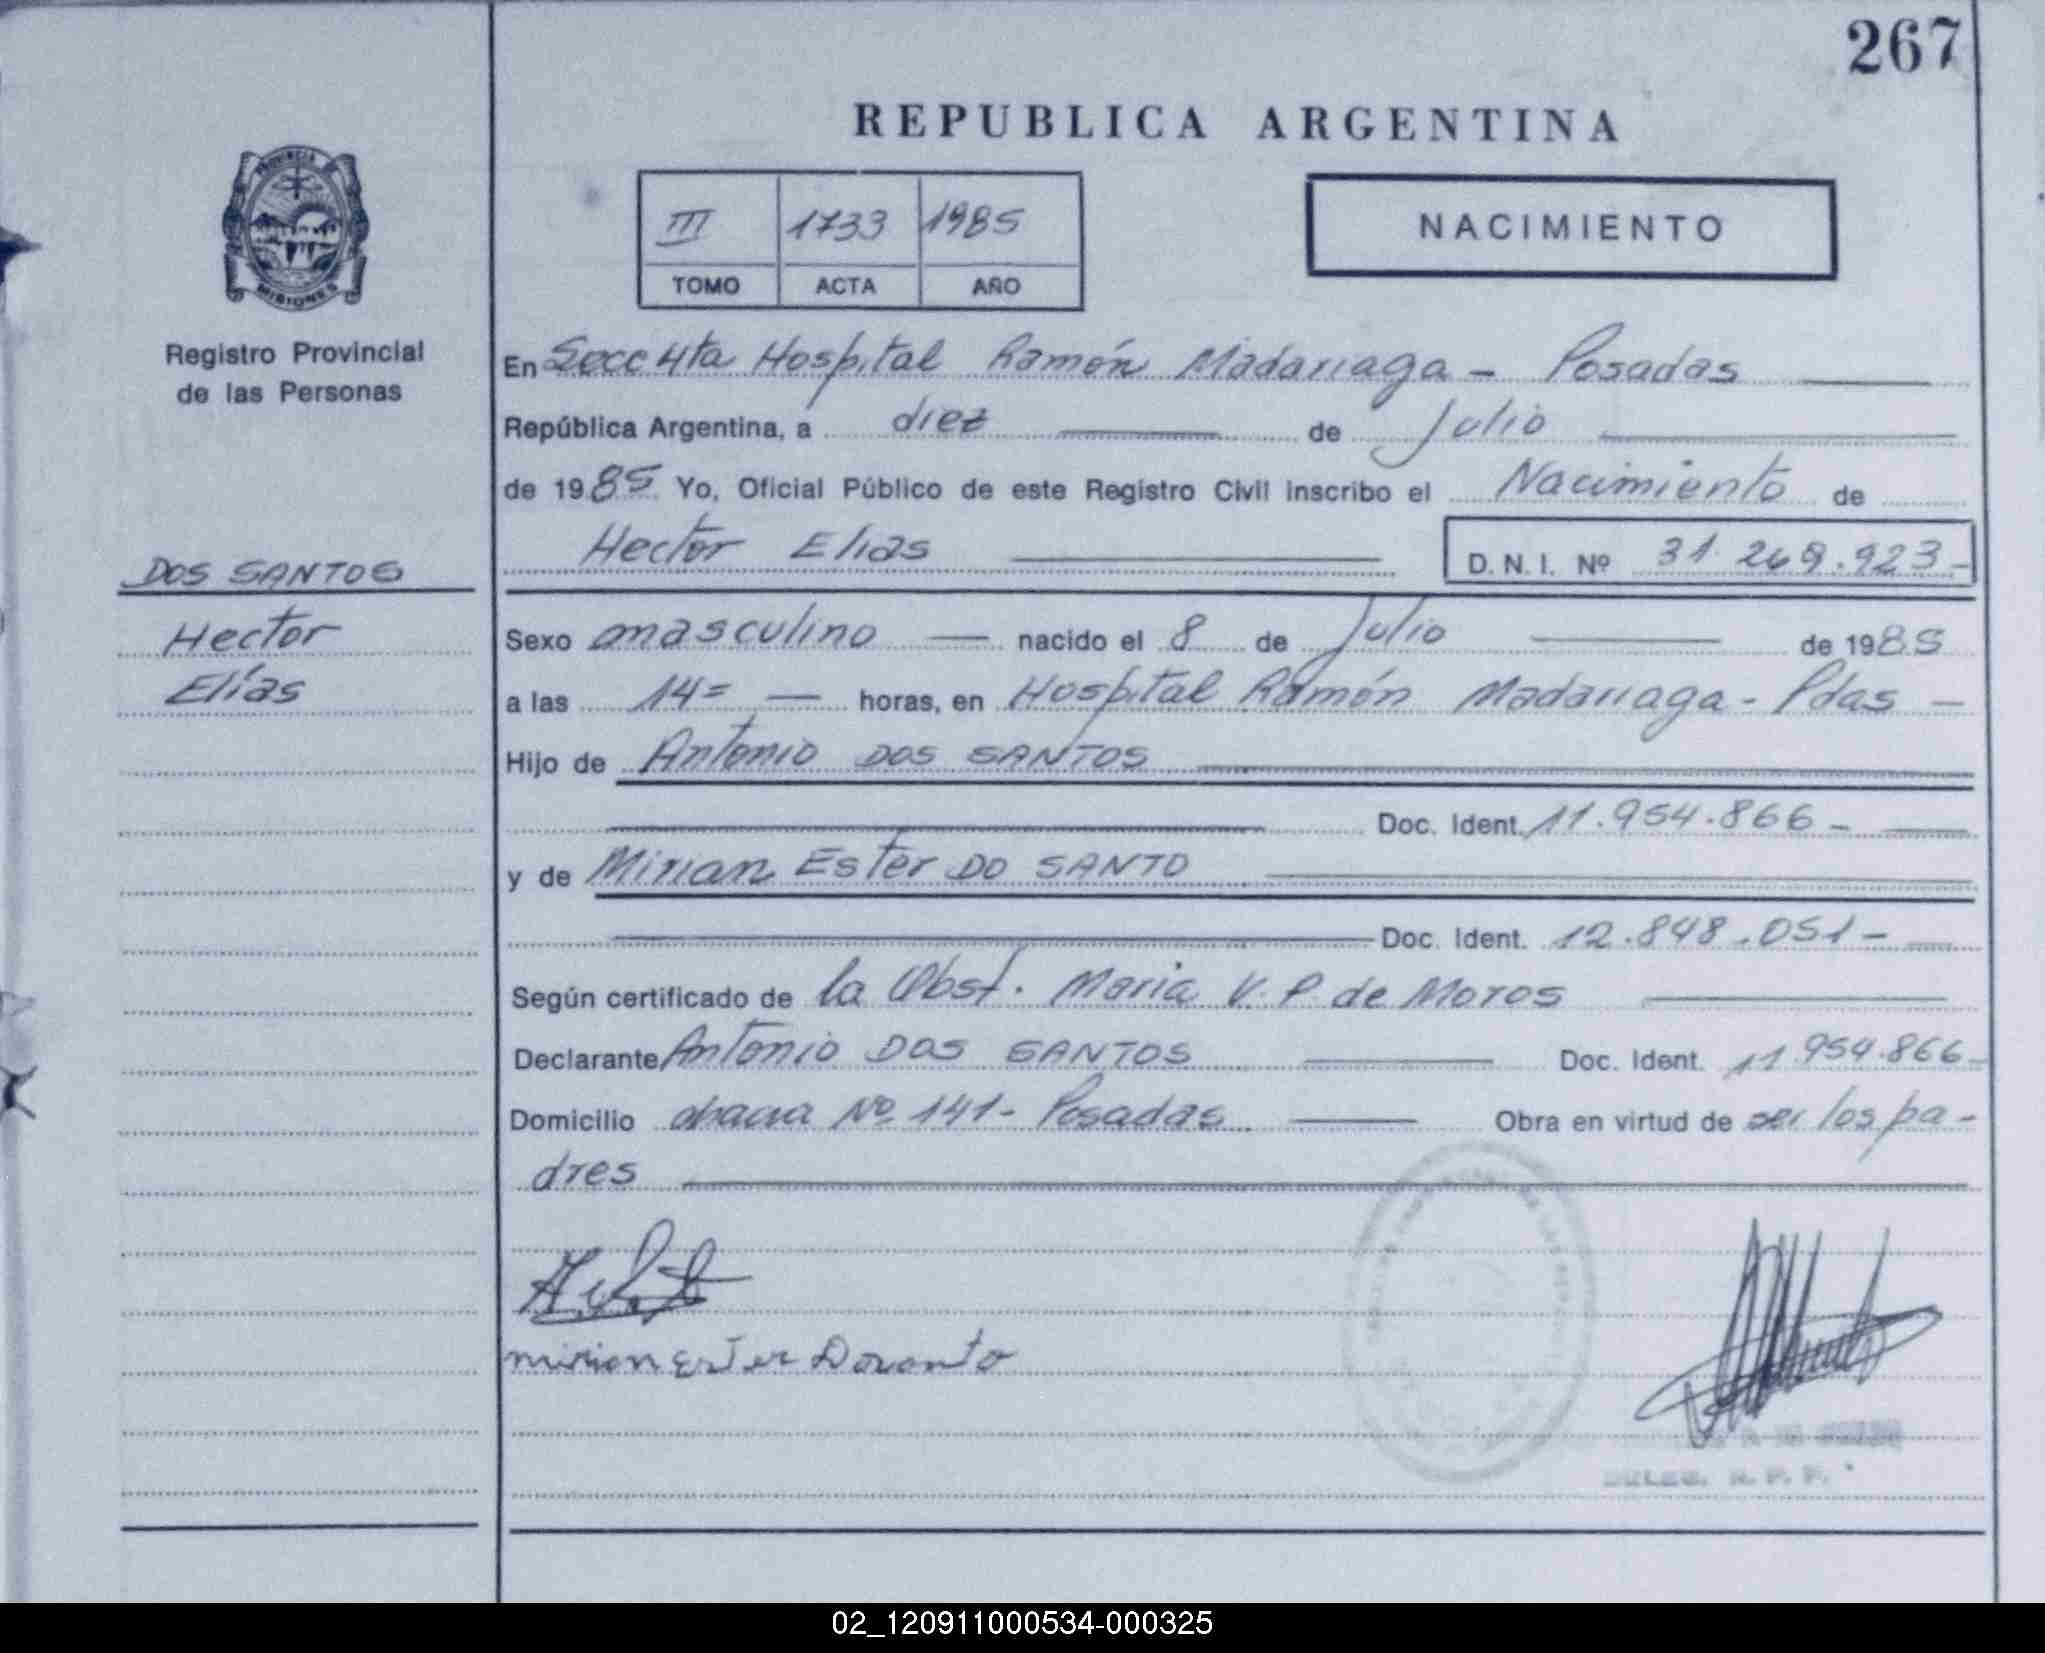 267
REPUBLICA ARGENTINA
PROVINCIA DE
MISIONES
Registro Provincial
de las Personas
III 1733 1985
TOMO ACTA AÑO
NACIMIENTO
En Secc 4ta Hospital Ramón Madariaga - Posadas
República Argentina, a diez de Julio
de 1985 Yo, Oficial Público de este Registro Civil inscribo el Nacimiento de
Hector Elias D. N. I. Nº 31.269.923-
DOS SANTOS
Hector
Elías
Sexo masculino nacido el 8 de Julio de 1985
a las 14= horas, en Hospital Ramón Madariaga - Pdas -
Hijo de Antonio DOS SANTOS
Doc. Ident. 11.954.866 -
y de Mirian Ester DO SANTO
Doc. Ident. 12.848.051 -
Según certificado de la Obst. Maria V. P. de Moros
Declarante Antonio DOS SANTOS Doc. Ident. 11.954.866-
Domicilio chacra Nº 141 - Posadas Obra en virtud de ser los pa-
dres
mirian Ester Dosanto
R. P. P.
02_120911000534-000325